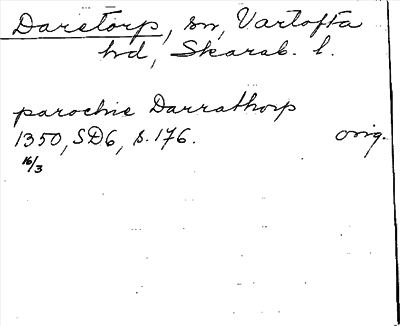 Daretorp, sn, Vartofta
hd, Skarab. l.
parochie Darrathorp
1350, SD6, s. 176. orig.
16/3